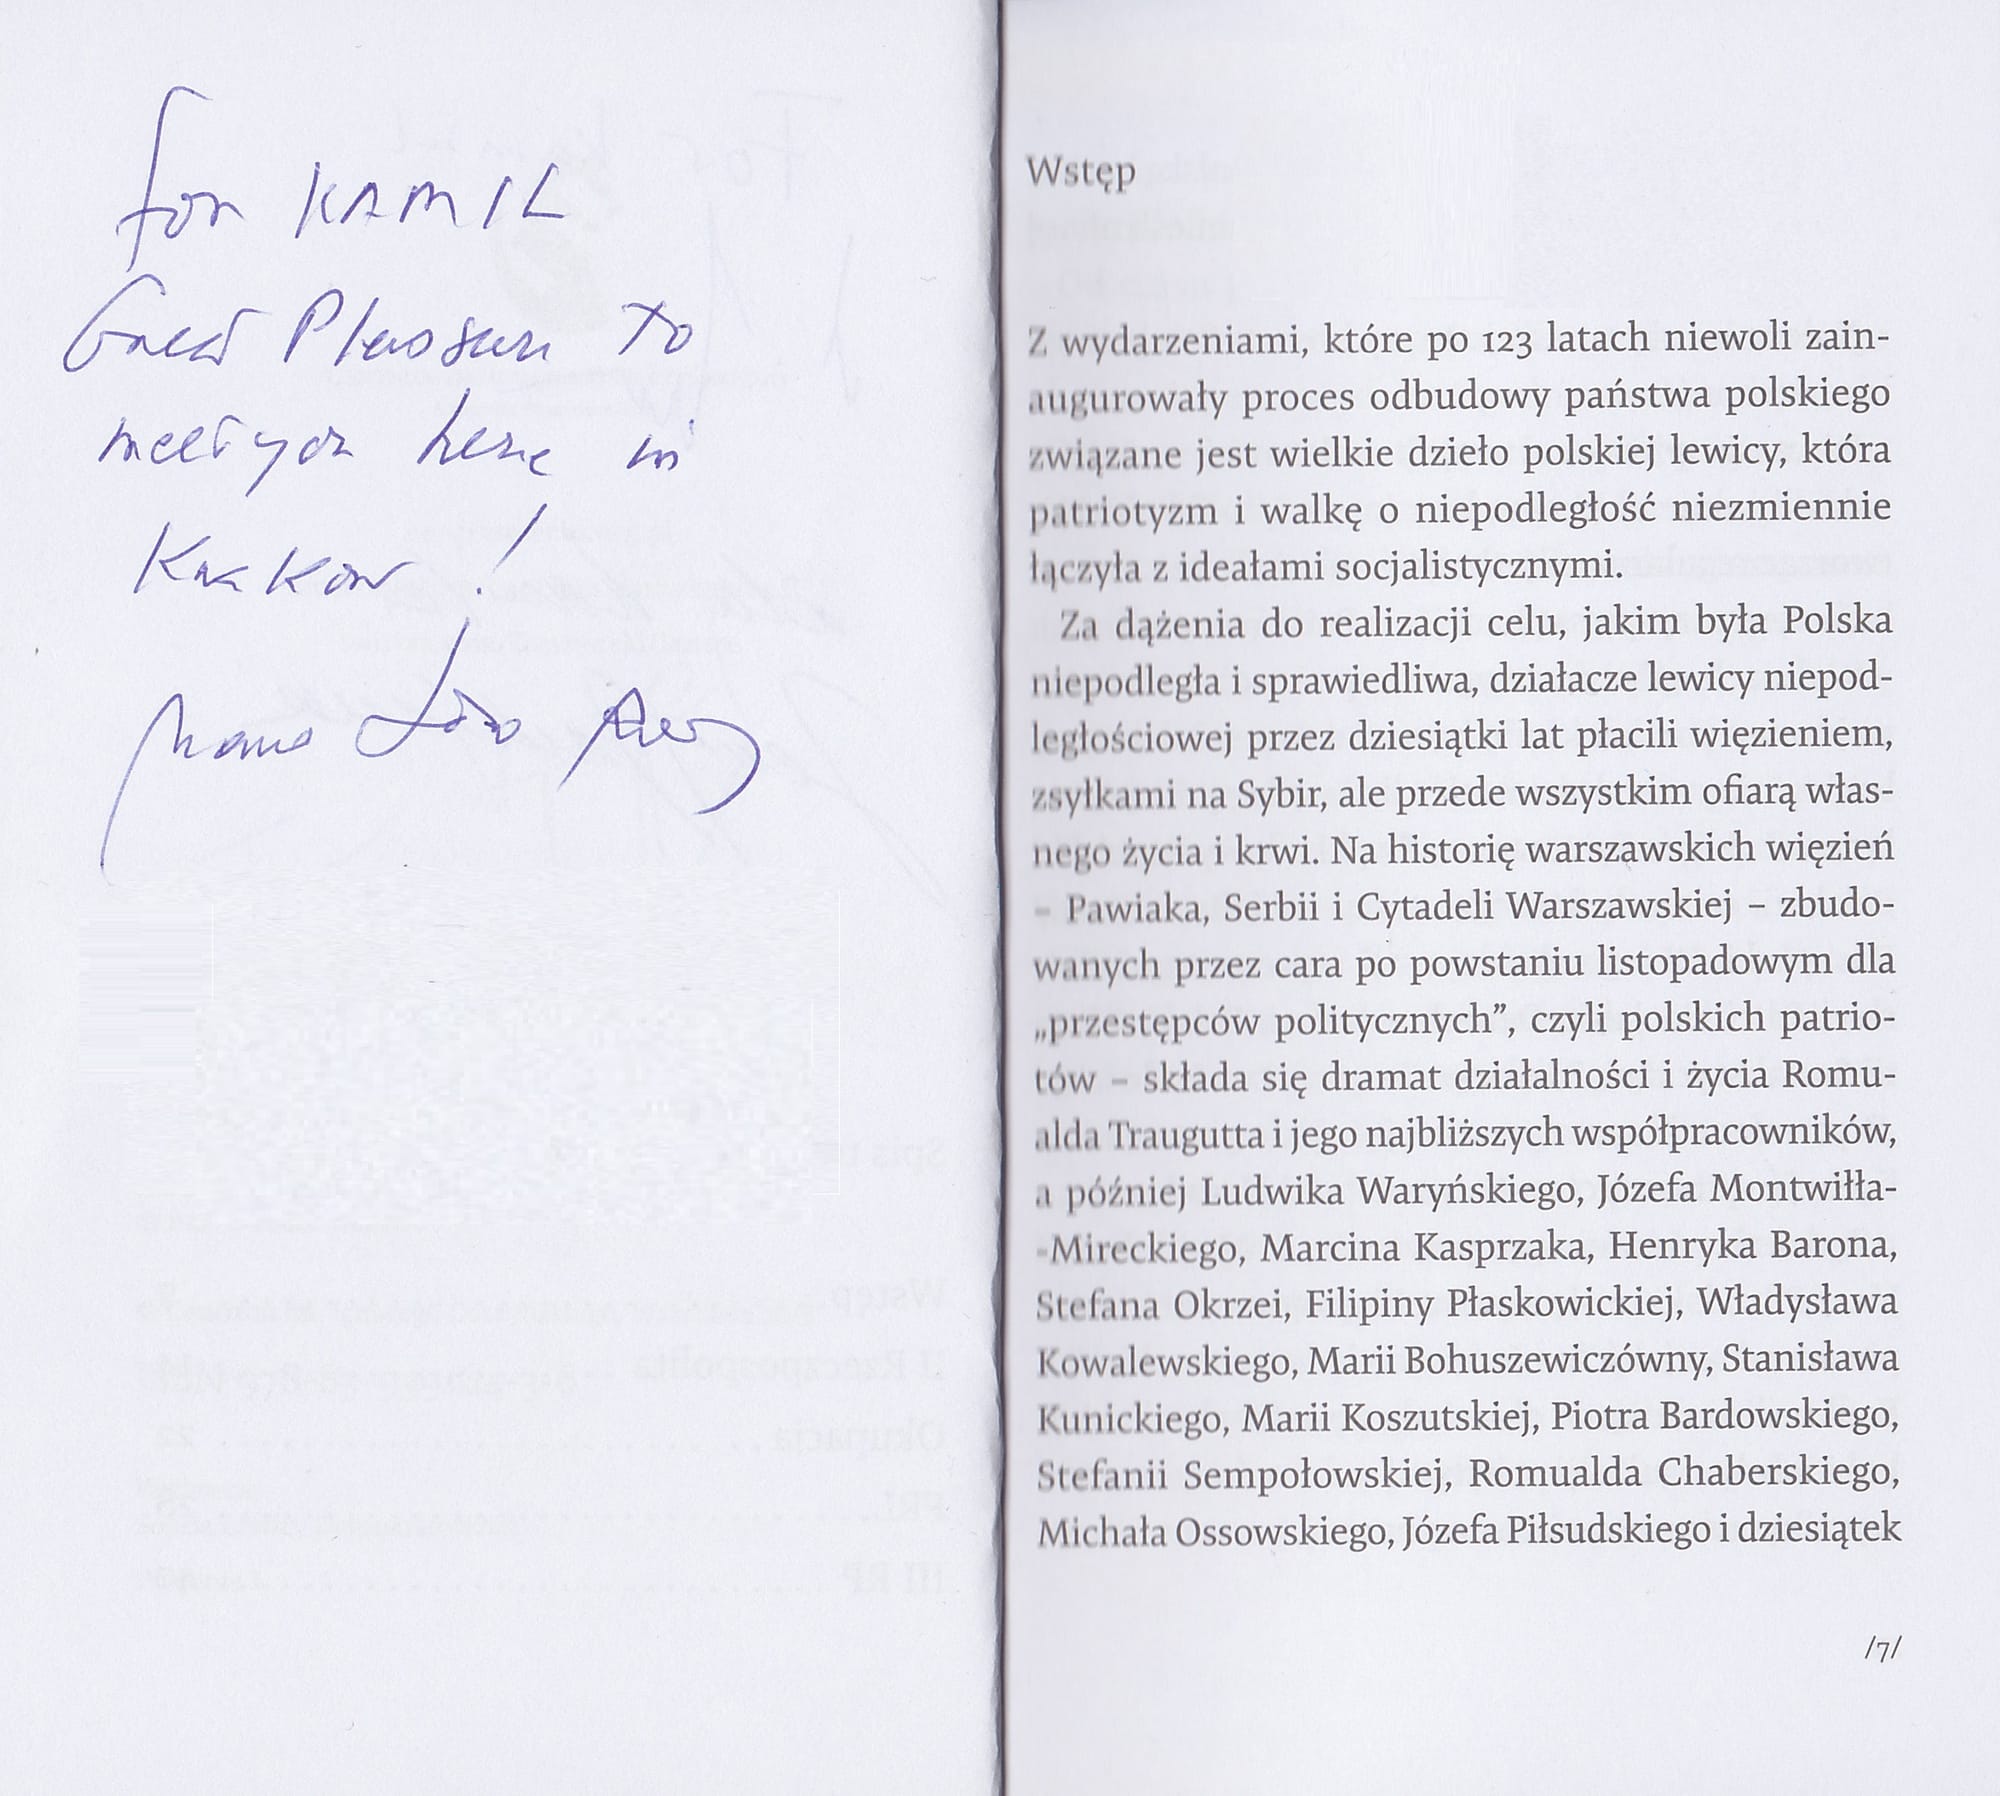 for KAMIL
Great Pleasure to
meet you here in
Krakow!
Wstęp
Z wydarzeniami, które po 123 latach niewoli zain-
augurowały proces odbudowy państwa polskiego
związane jest wielkie dzieło polskiej lewicy, która
patriotyzm i walkę o niepodległość niezmiennie
łączyła z ideałami socjalistycznymi.
Za dążenia do realizacji celu, jakim była Polska
niepodległa i sprawiedliwa, działacze lewicy niepod-
ległościowej przez dziesiątki lat płacili więzieniem,
zsyłkami na Sybir, ale przede wszystkim ofiarą włas-
nego życia i krwi. Na historię warszawskich więzień
– Pawiaka, Serbii i Cytadeli Warszawskiej – zbudo-
wanych przez cara po powstaniu listopadowym dla
„przestępców politycznych”, czyli polskich patrio-
tów – składa się dramat działalności i życia Romu-
alda Traugutta i jego najbliższych współpracowników,
a później Ludwika Waryńskiego, Józefa Montwiłła-
-Mireckiego, Marcina Kasprzaka, Henryka Barona,
Stefana Okrzei, Filipiny Płaskowickiej, Władysława
Kowalewskiego, Marii Bohuszewiczówny, Stanisława
Kunickiego, Marii Koszutskiej, Piotra Bardowskiego,
Stefanii Sempołowskiej, Romualda Chaberskiego,
Michała Ossowskiego, Józefa Piłsudskiego i dziesiątek
/7/